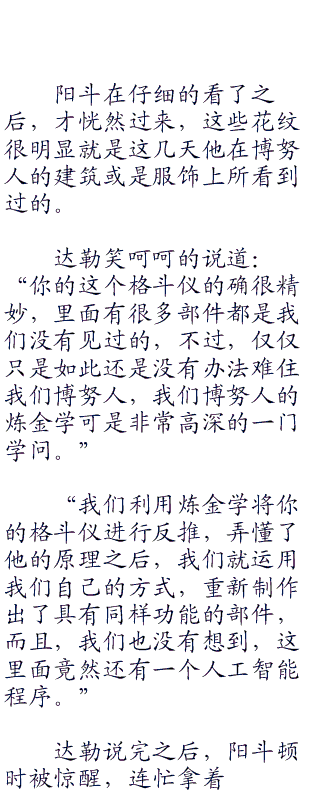 阳斗在仔细的看了之
后，才恍然过来，这些花纹
很明显就是这几天他在博努
人的建筑或是服饰上所看到
过的。
达勒笑呵呵的说道：
“你的这个格斗仪的确很精
妙，里面有很多部件都是我
们没有见过的，不过，仅仅
只是如此还是没有办法难住
我们博努人，我们博努人的
炼金学可是非常高深的一门
学问。”
“我们利用炼金学将你
的格斗仪进行反推，弄懂了
他的原理之后，我们就运用
我们自己的方式，重新制作
出了具有同样功能的部件，
而且，我们也没有想到，这
里面竟然还有一个人工智能
程序。”
达勒说完之后，阳斗顿
时被惊醒，连忙拿着